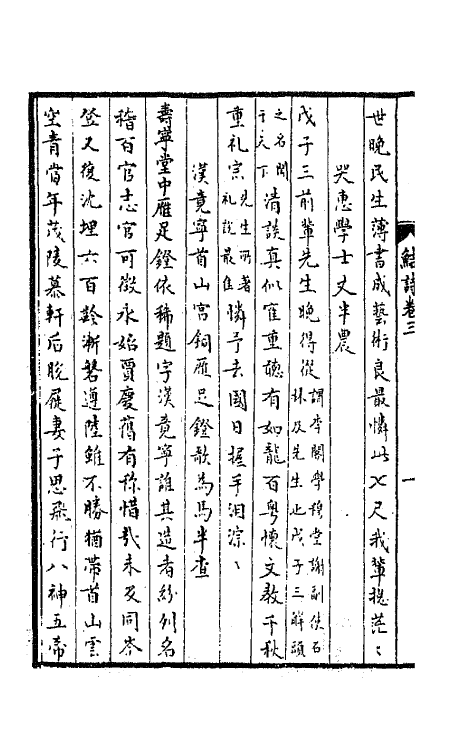 鮚詩卷三
一
世晚民生薄書成藝術良最憐此七尺我輩總茫ヽ
哭惠學士丈半農
戊子三前輩先生晚得從謂李閣學穆堂謝副使石林及先生也戊子三解頭
之名聞于天下清談真似寉重聽有如龍百粵懷文教千秋
重礼宗先生所著礼說最佳憐予去國日握手淚淙ヽ
漢竟寧首山宮銅雁足鐙歌為馬半查
壽寧堂中雁足鐙依稀題字漢竟寧誰其造者紛列名
稽百官志官可徵永始賈慶舊有称惜哉未及同岑
登又復沈埋六百齡漸磐遵陸雖不勝猶帶首山雲
空青當年茂陵慕軒后脫屣妻子思飛行八神五帝